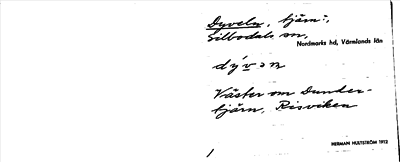 Dyveln, tjärn:,
Silbodals sn,
Nordmarks hd, Värmlands län
dývən
Väster om Dunder-
tjärn, Risviken
HERMAN HULTSTRÖM 1912
/